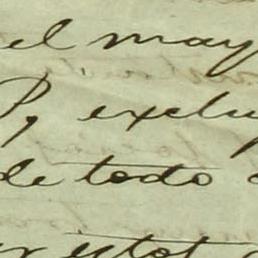 el may
P, exclu
de todo